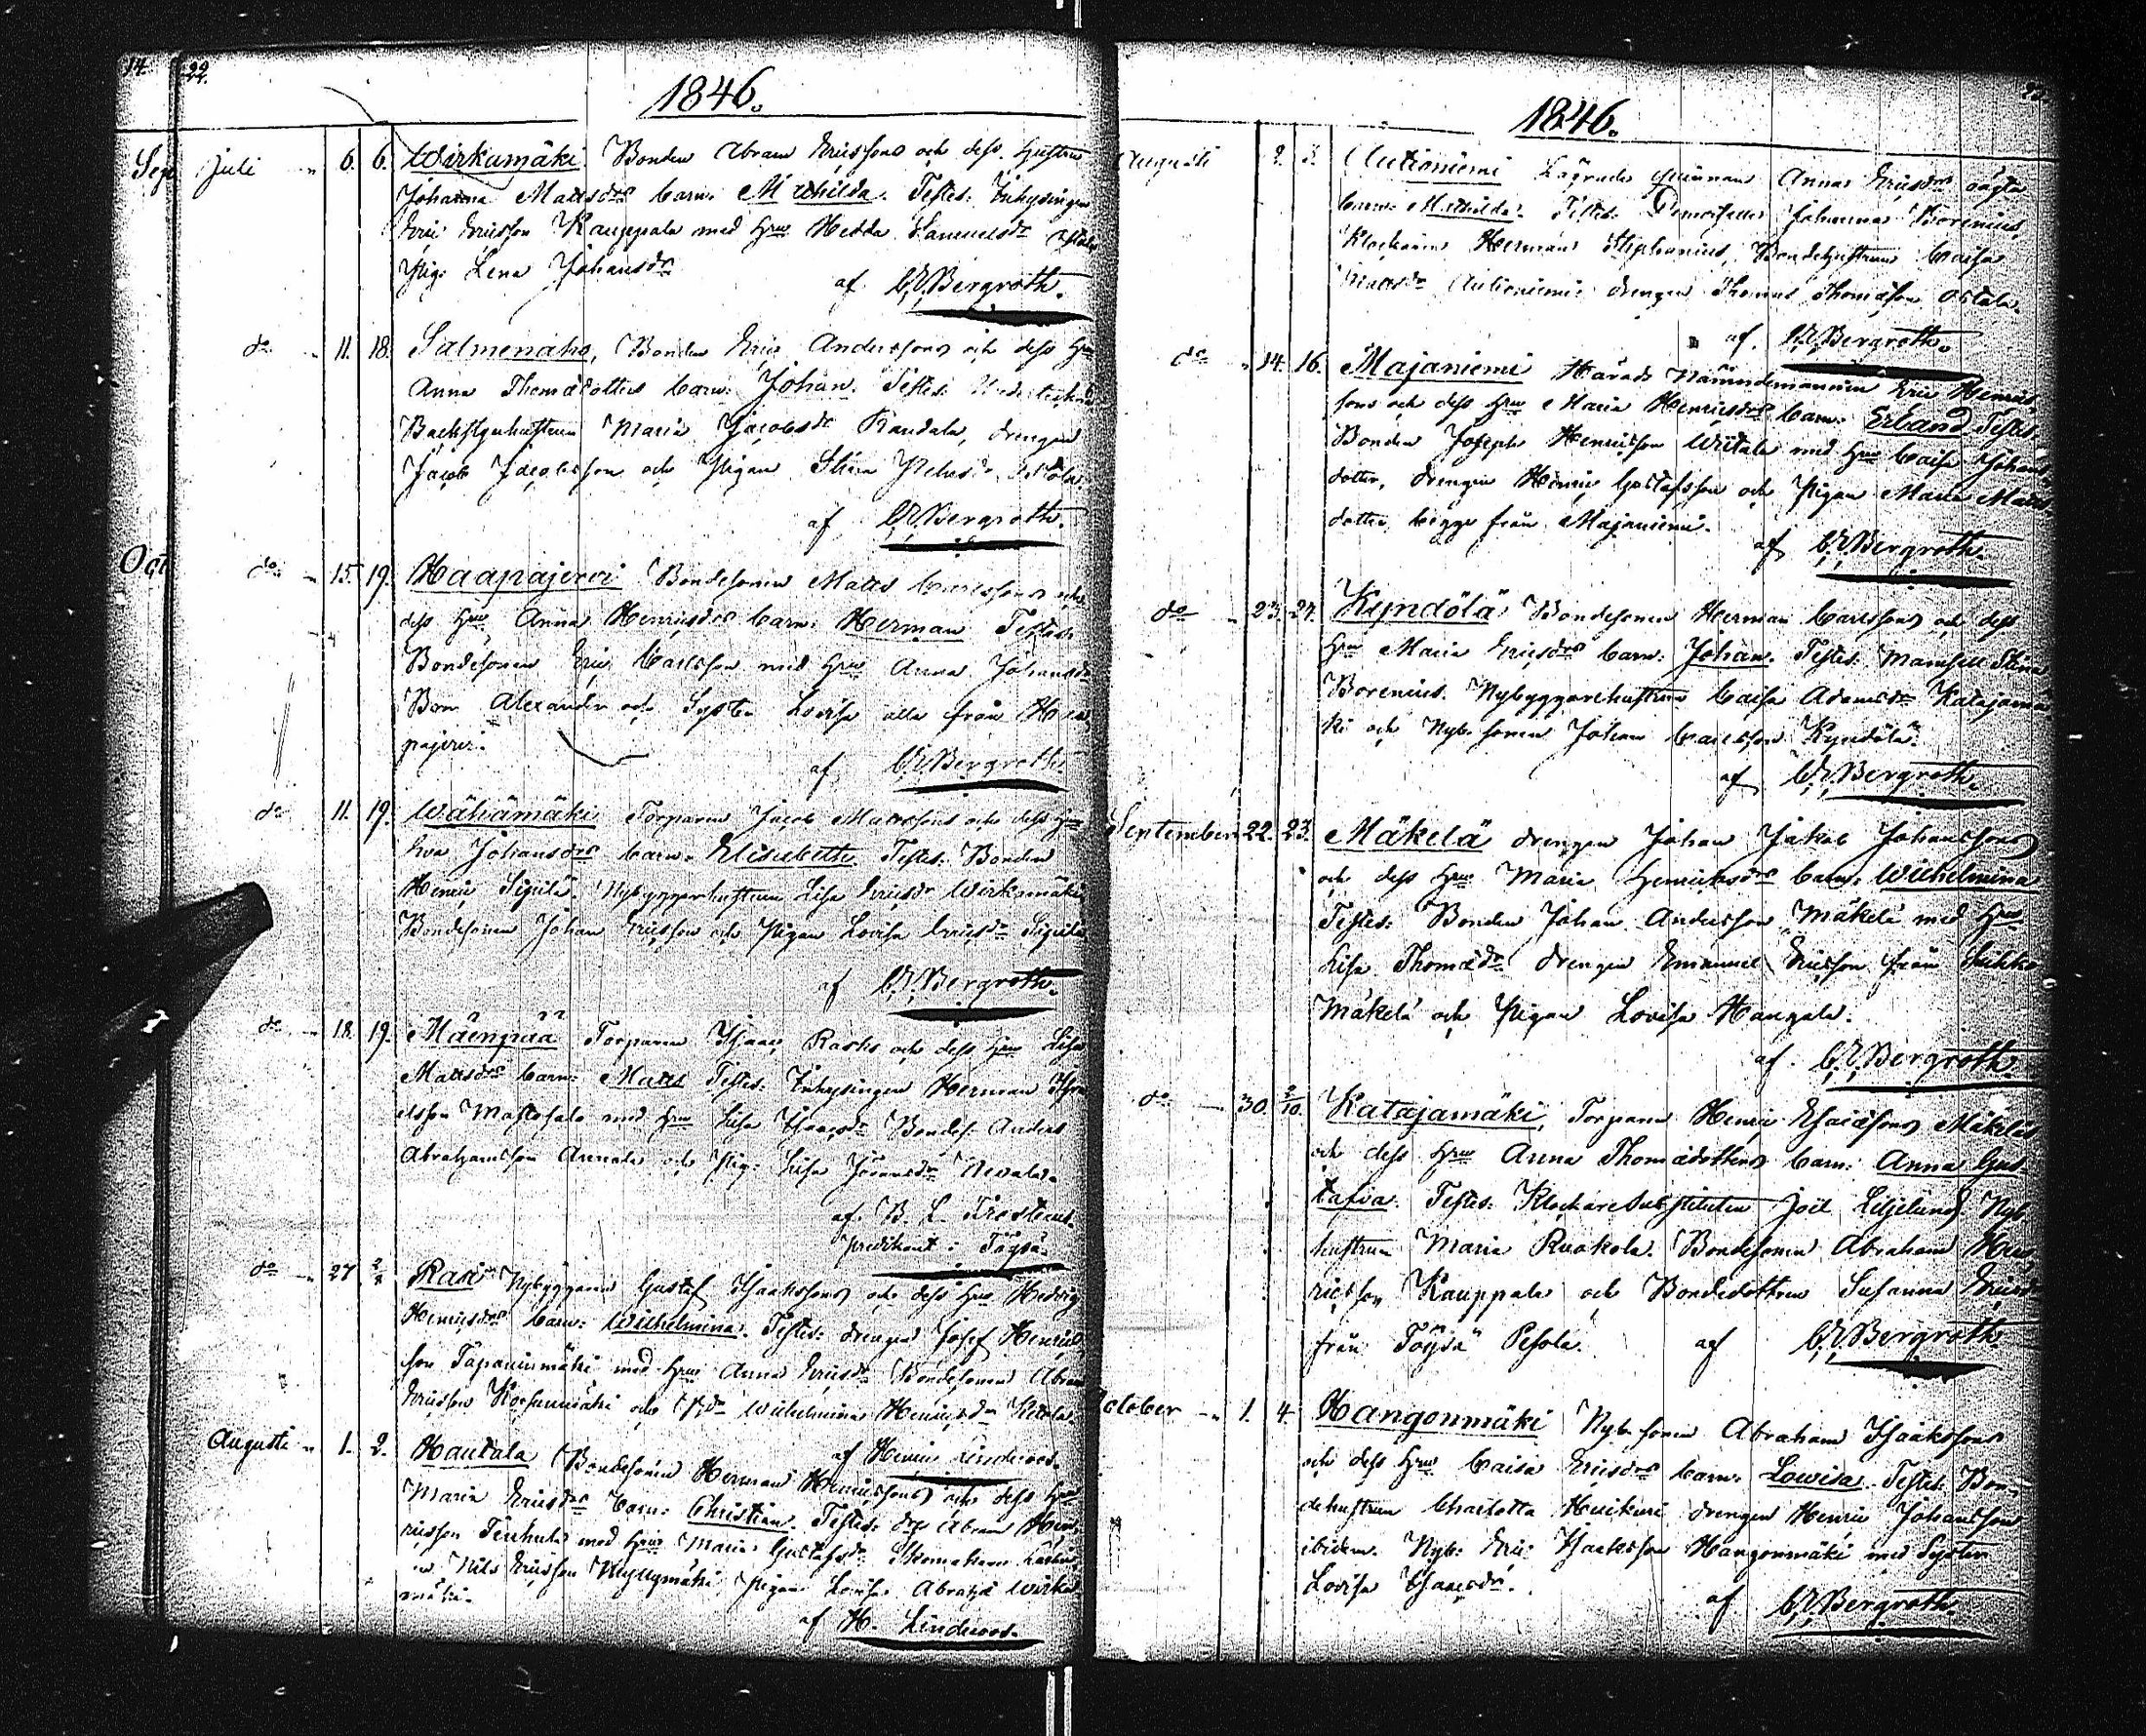 14. 22.
1846.
Sept Juli " 6. 6. Wirkamäki Bonden Abram Ericssons och dess Hustru
Johanna Mattsdrs barn: Mathilda. Testes: Inhysingen
Eric Ericsson Kauppala med Hru Hedda Samuelsdr
Pig: Lena Johansdr
af C,E,Bergroth.
do " 11. 18. Salmenaho, Bonden Eric Anderssons och dess Hru
Anna Thomædotters barn: Johan. Testes:
Backstguhustrun Maria Jacobsdr Randala, drengen
Jacob Jacobsson och Pigan Stina
af C,E,Bergroth.
Oct do " 15. 19. Haapajervi Bondesonen Matts Carlssons och
dess Hru Anna Henricsdrs barn: Herman Testes:
Bondesonen Eric Carlsson med Hru Anna Johansdr
Bror Alexander och Syster Lovisa alla från Haa
pajervi.
af C,E,Bergroth.
do 11. 19. Wähämäki Torparen Jacob Mattssons och dess Hru
Eva Johansdrs barn: Elisabeth. Testes: Bonden
Henric Sipilä. Nybyggarhustrun Lisa Ericsdr Wirkamäki
Bondesonen Johan Ericsson och Pigan Lovisa Ericsdr Sipilä
af C,E,Bergroth.
do " 18. 19. Mäenpää Torparen Isaac Rasks och dess Hru Lisa
Mattsdrs barn: Matts Testes: Inhysingen Herman Isra
elsson med Hru Lisa Isaacsdr Bondes. Anders
Abrahamsson Annala och Pig: Lisa Johansdr
af. B. L. Frosterus
predikant i Töysä.
do " 27 2/8 Rasi Nybyggaren Gustaf Isaakssons och dess Hru Hedvig
Henricsdrs barn: Wilhelmina. Testes: drengen Josef Henrics
son Tapaninmäki med Hru Anna Ericsdr Bondesonen Abram
Ericsson och Wilhelmina Henricsdr Ketola
af Henric Lindroos.
Augusti " 1. 2. Hautala Bondesonen Herman Henricssons och dess Hru
Maria Ericsdrs barn: Christian. Testes: Abram Hen
ricsson med Hru Maria Gustafsdr Skomakare
Nils Ericsson Myllymäki Pigan Lovisa Abrahsd Wirka
mäki.
af H. Lindroos.
1846.
Augusti 2. 3. Autioniemi Lägrade qvinnan Annas Ericsdrs oägta
barn: Mathilda. Testes: Demoiselle Johanna Borenius,
Klockaren Herman Stephanius, Bondehustrun Caisa
Mattsdr Autioniemi drengen Thomas Thomasson
af. C,E,Bergroth.
do " 14. 16. Majaniemi Härads Nämndemannen Eric Henrics
sons och dess Hru Maria Henricsdrs barn: Erland Testes
Bonden Joseph Henricsson Wiitala med Hru Caisa Johans
dotter, drengen Henric Gustafsson och Pigan Maria Matts
dotter begge från Majaniemi.
af C,E,Bergroth.
do " 23. 24. Kyndölä Bondesonen Herman Carlssons och dess
Hru Maria Ericsdrs barn: Johan. Testes: Mamsell Stina
Borenius. Nybyggarehustrun Caisa Adamsdr Katajamä
ki och Nyb. sonen Johan Carlsson Kyndölä.
af C,E,Bergroth.
September 22. 23. Mäkelä drengen Johan Jakob Johanssons
och dess Hru Maria Henricksdrs barn: Wilhelmina
Testes: Bonden Johan Andersson Mäkelä med Hru
Lisa Thomædr drengen Emanuel Ericsson från
Mäkelä och Pigan Lovisa Hangala.
af. C,E,Bergroth.
do " 30. 2/10. Katajamäki, Torparen Henric Esaiæsons Mäkeläs
och dess Hru Anna Thomædotters barn: Anna Gus
tafva. Testes: Klockaresubstituten Joel Liljelund Nyb.
hustrun Maria Ruokola. Bondesonen Abraham Hen
ricsson Kauppala och Bondedottren Susanna Ericsdr
från Töysä Pesola. af C,E,Bergroth.
October " 1. 4. Hangonmäki Nyb. sonen Abraham Isaakssons
och dess Hru Caisa Ericsdrs barn: Lowisa. Testes: Bon
dehustrun Charlotta Huikuri drengen Henric Johansson
ibidem. Nyb: Eric Isaaksson Hangonmäki med Syster
Lovisa Isaacsdr.
af C,E,Bergroth.